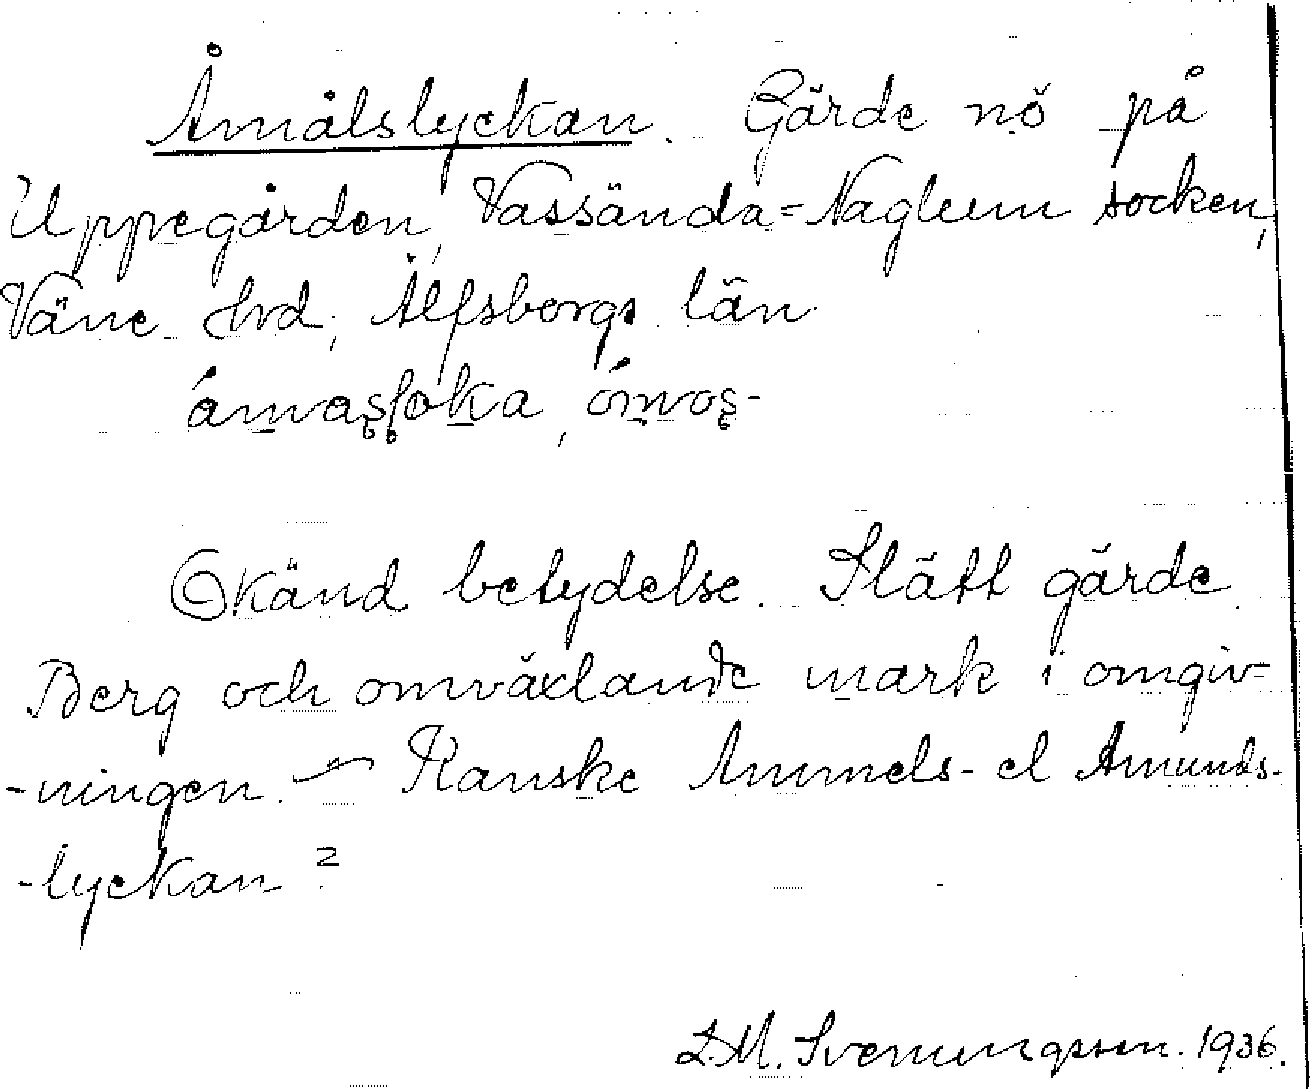 Åmålslyckan. Gärde nö på
Uppegården, Vassända=Naglum socken,
Väne hrd, Älfsborgs län
Okänd betydelse. Slätt gärde.
Berg och omväxlande mark i omgiv=
-ningen. — Kanske Ammels- el Amunds-
-lyckan?
L.M. Svenungsson. 1936.